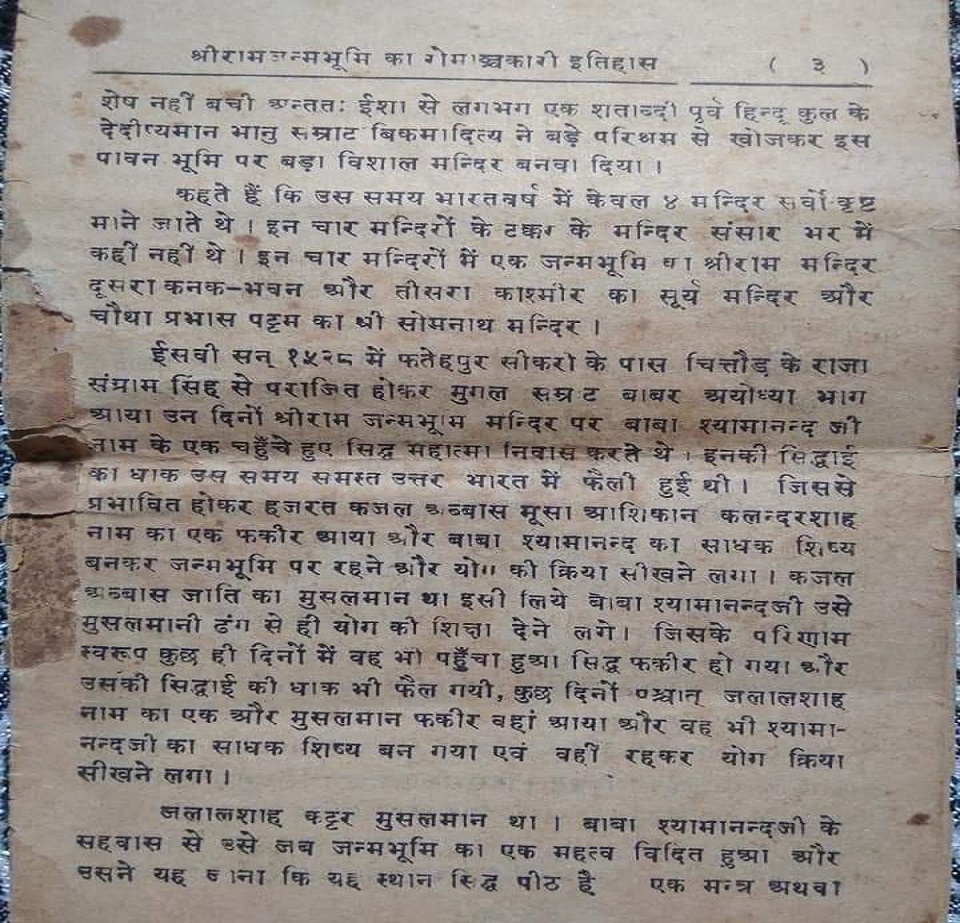 श्रीरामजन्मभूमि का रोमाञ्चकारी इतिहास ( ३ )
शेष नहीं बची अन्ततः ईशा से लगभग एक शताब्दी पूर्व हिन्दू कुल के
देदीप्यमान भानु सम्राट बिकमादित्य ने बड़े परिश्रम से खोजकर इस
पावन भूमि पर बड़ा विशाल मन्दिर बनवा दिया ।
कहते हैं कि उस समय भारतवर्ष में केवल ४ मन्दिर
माने जाते थे । इन चार मन्दिरों के टक्कर के मन्दिर संसार भर में
कहीं नहीं थे । इन चार मन्दिरों में एक जन्मभूमि का श्रीराम मन्दिर
दूसरा कनक-भवन और तीसरा काश्मीर का सूर्य मन्दिर और
चौथा प्रभास पट्टम का श्री सोमनाथ मन्दिर ।
ईसवी सन् १५२८ में फतेहपुर सीकरी के पास चित्तौड़ के राजा
संग्राम सिंह से पराजित होकर मुगल सम्राट बाबर अयोध्या भाग
आया उन दिनों श्रीराम जन्मभूमि मन्दिर पर बाबा श्यामानन्द जी
नाम के एक चहुँचे हुए सिद्ध महात्मा निवास करते थे । इनकी सिद्धाई
का धाक उस समय समस्त उत्तर भारत में फैली हुई थी । जिससे
प्रभावित होकर हजरत कजल अब्बास मूसा आशिकान कलन्दरशाह
नाम का एक फकीर आया और बाबा श्यामानन्द का साधक शिष्य
बनकर जन्मभूमि पर रहने और योग की क्रिया सीखने लगा । कजल
अब्बास जाति का मुसलमान था इसी लिये बाबा श्यामानन्दजी उसे
मुसलमानी ढंग से ही योग की शिक्षा देने लगे । जिसके परिणाम
स्वरूप कुछ ही दिनों में वह भी पहुँचा हुआ सिद्ध फकीर हो गया और
उसकी सिद्धाई की धाक भी फैल गयी, कुछ दिनों पश्चात् जलालशाह
नाम का एक और मुसलमान फकीर वहां आया और वह भी श्यामा-
नन्दजी का साधक शिष्य बन गया एवं वहीं रहकर योग क्रिया
सीखने लगा ।
जलालशाह कट्टर मुसलमान था । बाबा श्यामानन्दजी के
सहवास से उसे जब जन्मभूमि का एक महत्व विदित हुआ और
उसने यह जाना कि यह स्थान सिद्ध पीठ है एक मन्त्र अथवा